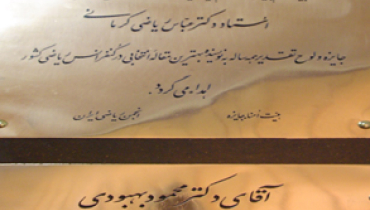 استاد دکتر عباس ریاضی کرمانی
جایزه و لوح تقدیر هر ساله به نویسنده بهترین مقاله انتخابی در کنفرانس ریاضی کشور
اهدا می گردد.
هیئت امنا جایزه انجمن ریاضی ایران
آقای دکتر محمود بهبودی